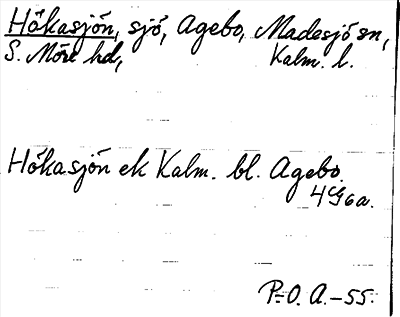 Hökasjön, sjö, Agebo, Madesjö sn,
S. Möre hd, Kalm. l.
Hökasjön ek Kalm. bl. Agebo
4G6a.
P-O. A.-55.